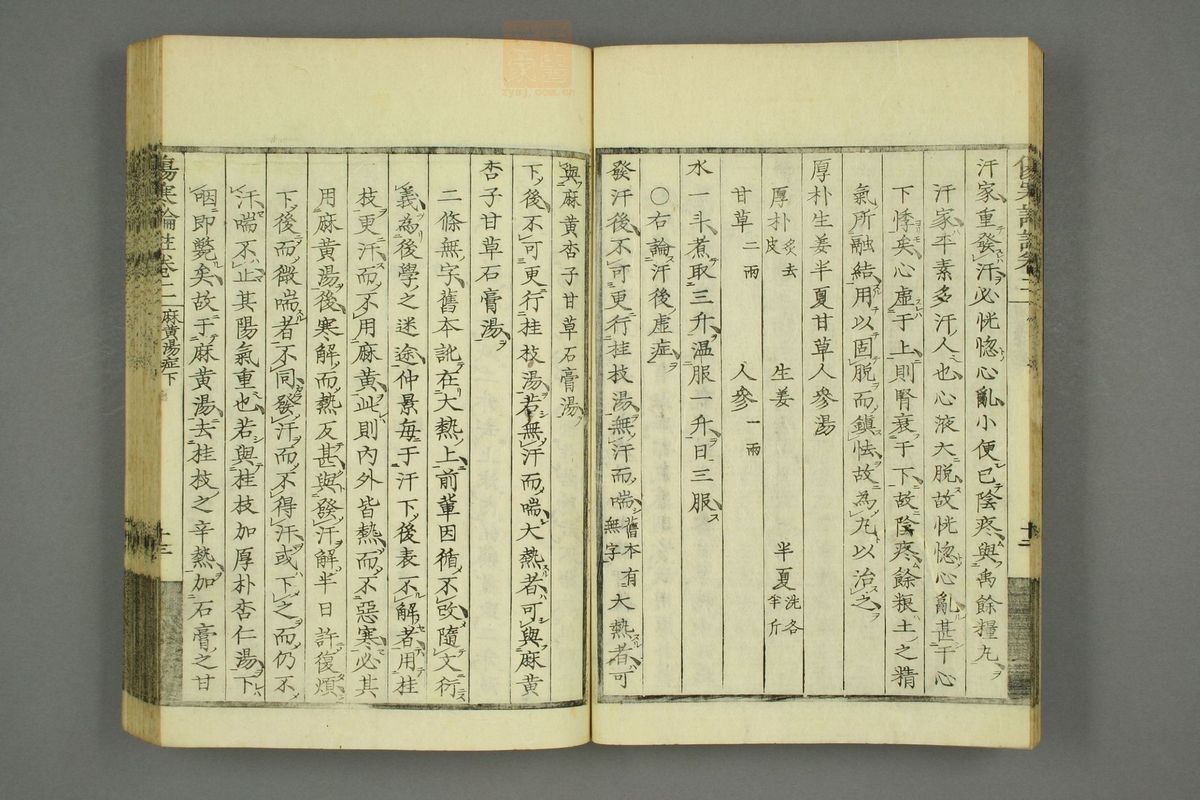 汗家重發汗必恍惚心亂小便已陰疼與禹餘糧丸
汗家平素多汗人也心液大脫故恍惚心亂甚于心
下悸矣心虛于上則腎衰于下故陰疼餘粮土之精
氣所融結用以固脫而鎮怯故為丸以治之
厚朴生姜半夏甘草人參湯
厚朴 炙去皮 生姜 半夏 洗各半斤
甘草 二兩 人參 一兩
水一斗煮取三升温服一升日三服
〇右論汗後虛症
發汗後不可更行桂枝湯無汗而喘 舊本有無字 大熱者可
與麻黄杏子甘草石膏湯
下後不可更行桂枝湯若無汗而喘大熱者可與麻黄
杏子甘草石膏湯
二條無字舊本訛在大熱上前軰因循不改隨文衍
義為後學之迷途仲景每于汗下後表不解者用桂
枝更汗而不用麻黄此則內外皆熱而不惡寒必其
用麻黄湯後寒解而熱反甚與發汗解半日許復煩
下後而微喘者不同發汗而不得汗或下之而仍不
汗喘不止其陽氣重也若與桂枝加厚朴杏仁湯下
咽即斃矣故于麻黄湯去桂枝之辛熱加石膏之甘
傷寒論註卷二 麻黄湯症下 十三